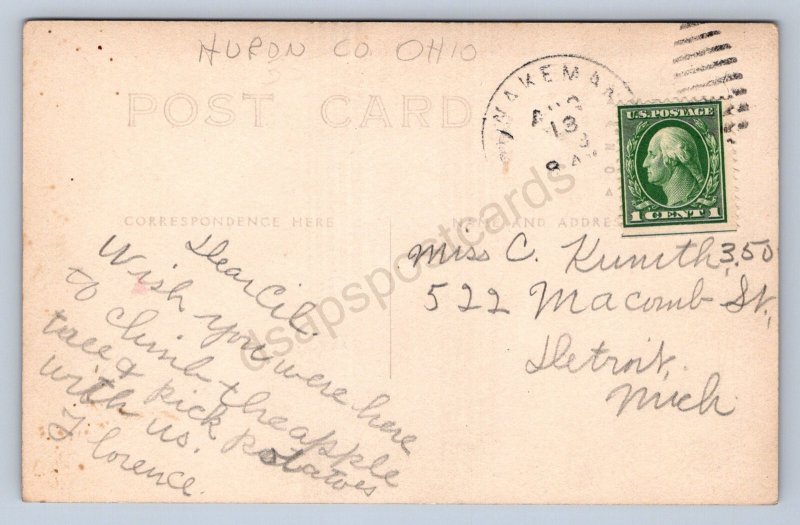 HURON CO. OHIO
POST CARD
WAKEMAN
AUG
13
8 AM
U.S. POSTAGE
1 CENT 1
CORRESPONDENCE HERE
NAME AND ADDRESS
Dear Cil.
Wish you were here
to climb the apple
tree & pick potatoes
with us.
Florence.
Miss C. 
3.50
522 Macomb St.,
Detroit,
Mich.
dsapspostcards